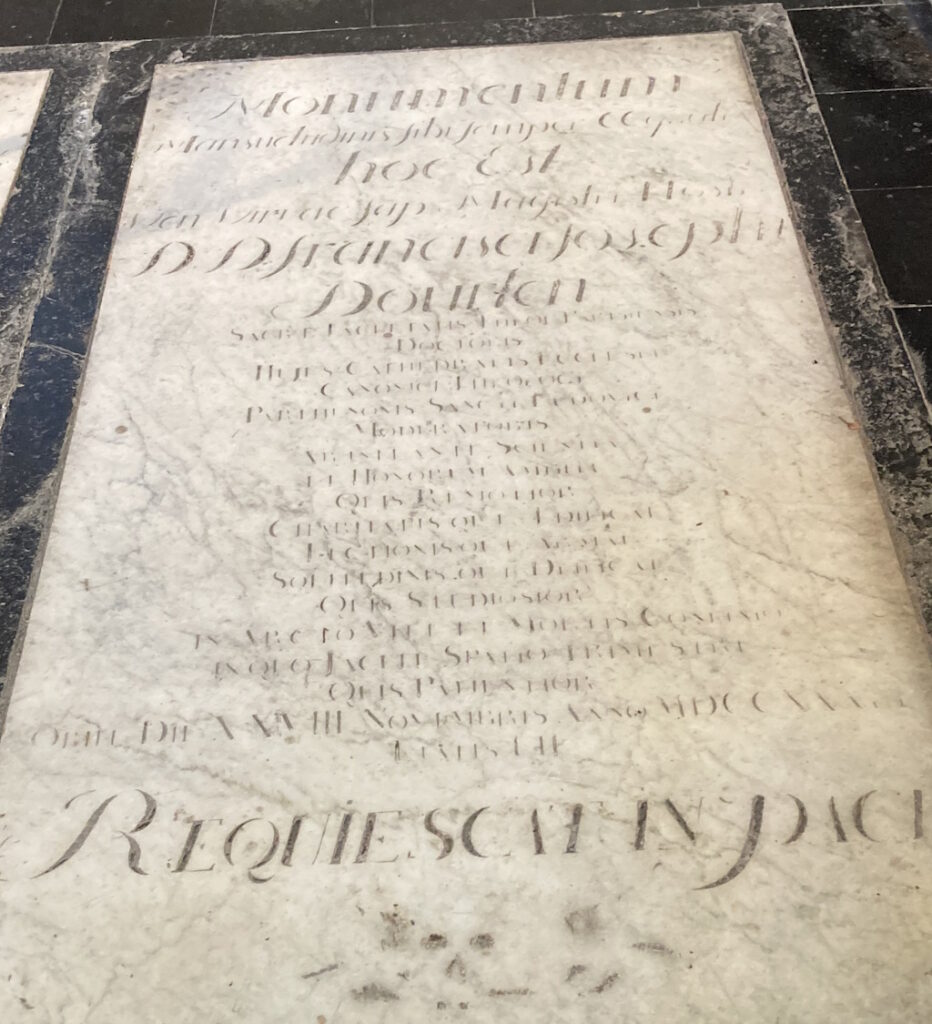 Monumentum
Mansuetudinis sibi semper
hoc Est
Ven Viri ac Sap. Magistri Nostri
D D francisci Joseph
Dourlen
SACRÆ FACULTATIS THEOL PARISIENSIS
DOCTORIS
HUJUS CATHEDRALIS ECCLESIÆ
CANONICI THEOLOGI
PARTHENONIS SANCTI LUDOVICI
MODERATORIS
AB INFLANTE SCIENTIA
ET HONORUM AMBITU
QUIS REMOTIOR
CHARITATIS QUÆ ÆDIFICAT
LECTIONIS QUÆ
SOLITUDINIS QUÆ
QUIS STUDIOSIOR
IN ARCTO VITÆ ET MORTIS CONFINIO
IN QUO JACUIT SPATIO TRIMESTRI
QUIS PATIENTIOR
OBIIT DIE XXVIII NOVEMBRIS ANNO
ÆTATIS LII
REQUIESCAT IN PACE